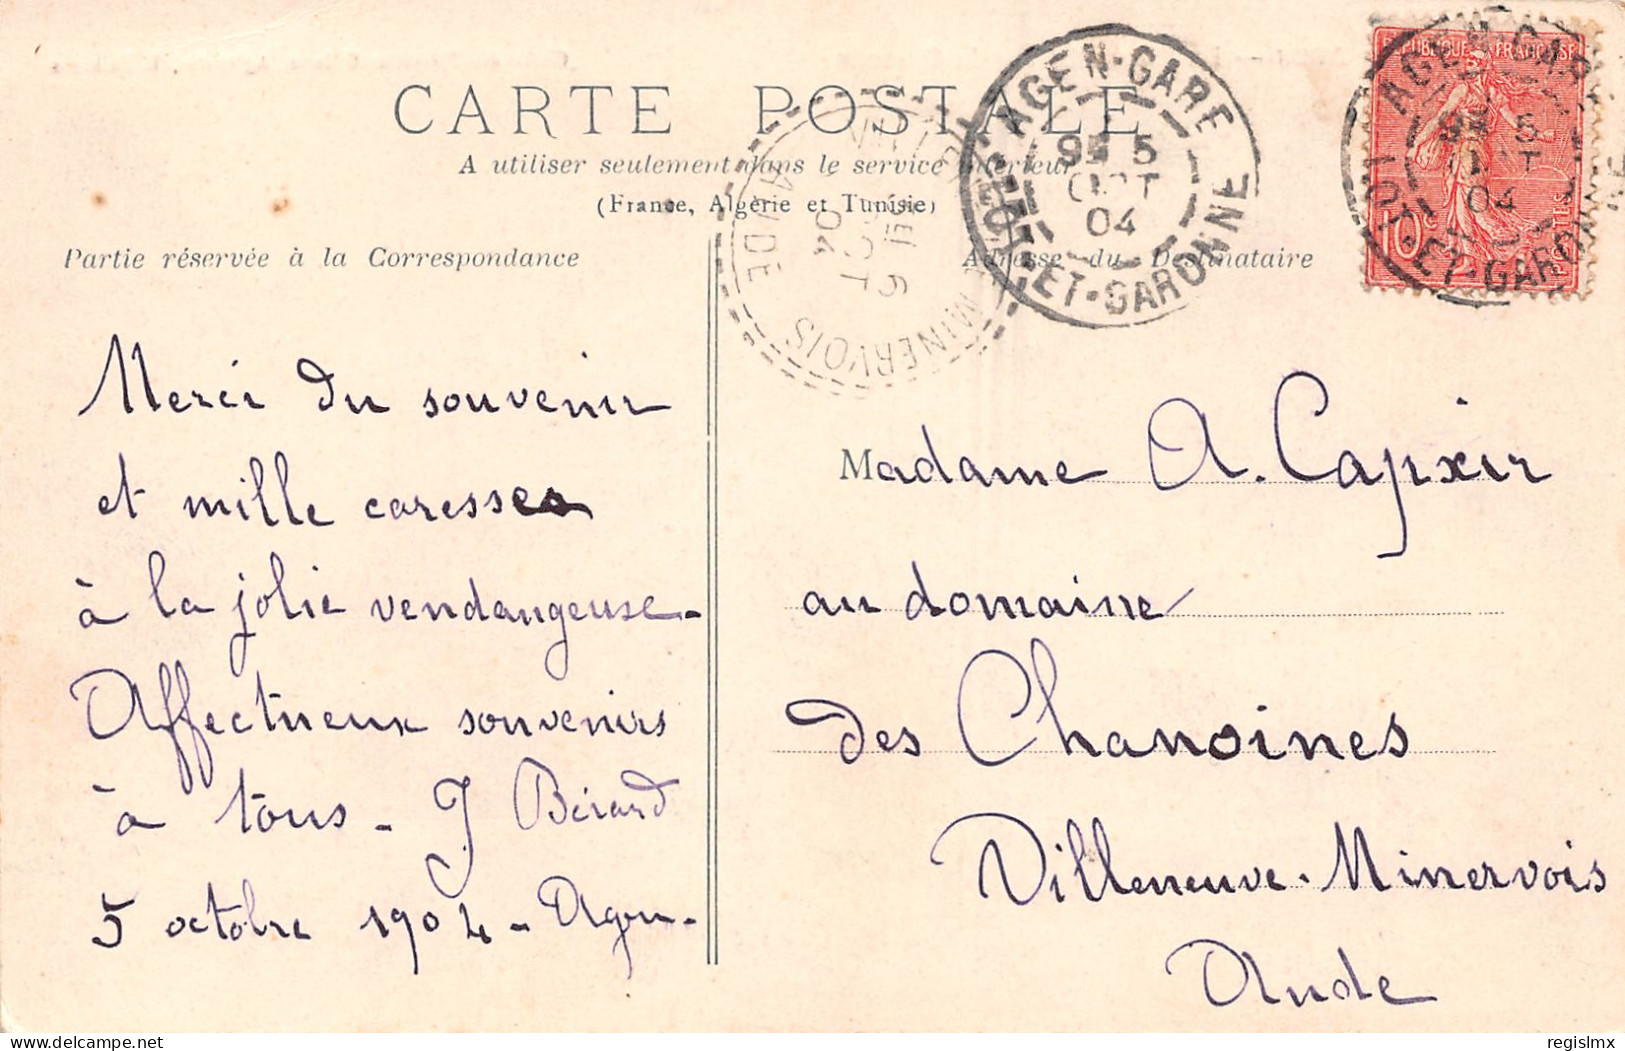 CARTE POSTALE
A utiliser seulement dans le service intérieur
(France, Algérie et Tunisie)
Partie réservée à la Correspondance
Adresse du Destinataire
Merci du souvenir
et mille caresses
à la jolie vendangeuse-
Affectueux souvenirs
à tous - J Bérard
5 octobre 1904 - Agen-
Madame A. Capxir
au domaine
des Chanoines
Villeneuve-Minervois
Aude
AGEN-GARE
5
OCT
04
LOT-ET-GARONNE
REPUBLIQUE FRANÇAISE
10c
POSTES
AGEN-GARE
5
OCT
04
LOT-ET-GARONNE
MINERVOIS
AUDE
6
OCT
04
delcampe.net
regislmx